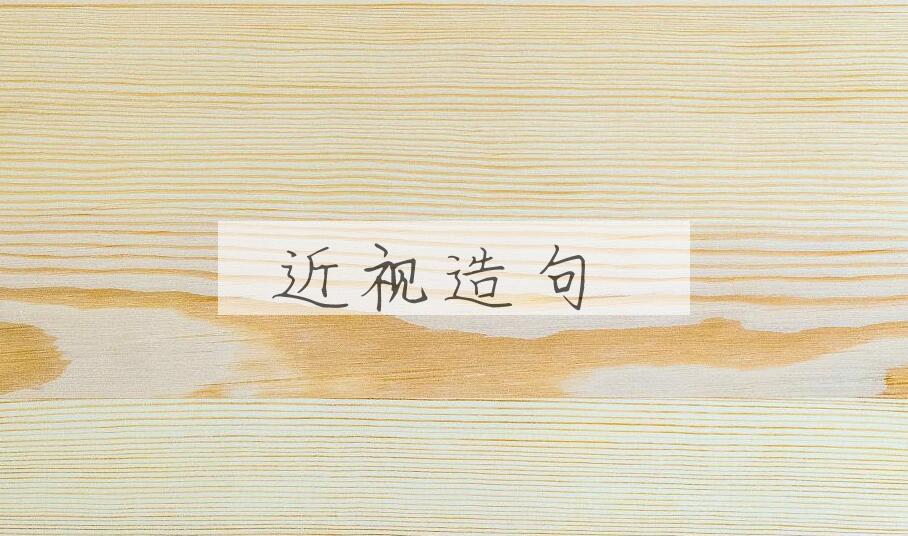 近视造句